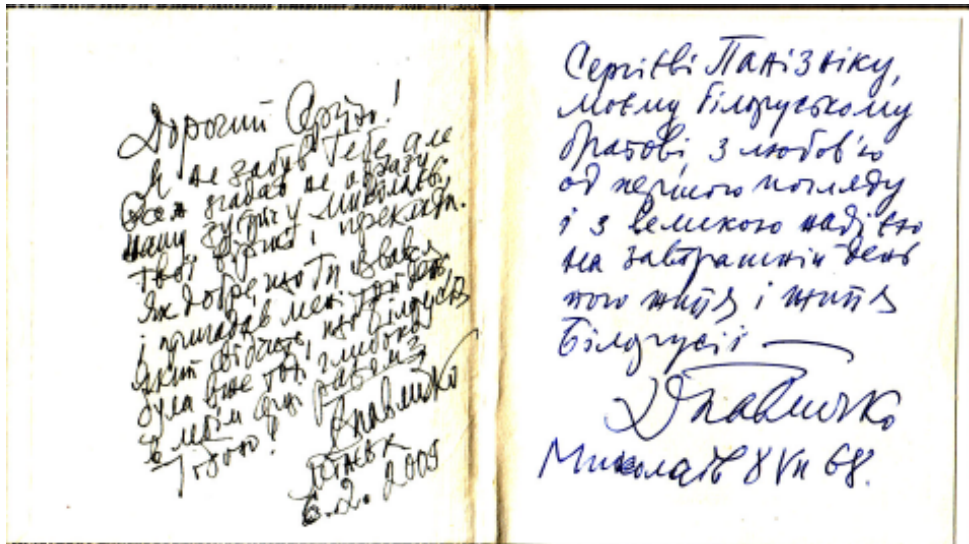 Дорогий Сергію!
Я не забув Тебе, але
згадав не одразу
нашу зустріч у Миколаєві,
твої вірші і переклади.
Як добре, що Ти
і пригадав мені той день,
який що Білорусь
була вже тоді глибоко
в моїм серці разом з
Тобою!
Д Павличко
6.2. 2009
Сергієві Панізніку,
моєму білоруському
братові, з любов'ю
од першого погляду
і з великою надією
на завтрашній день
його життя і життя
Білорусії —
Д Павличко
Миколаїв 8 VII 68.